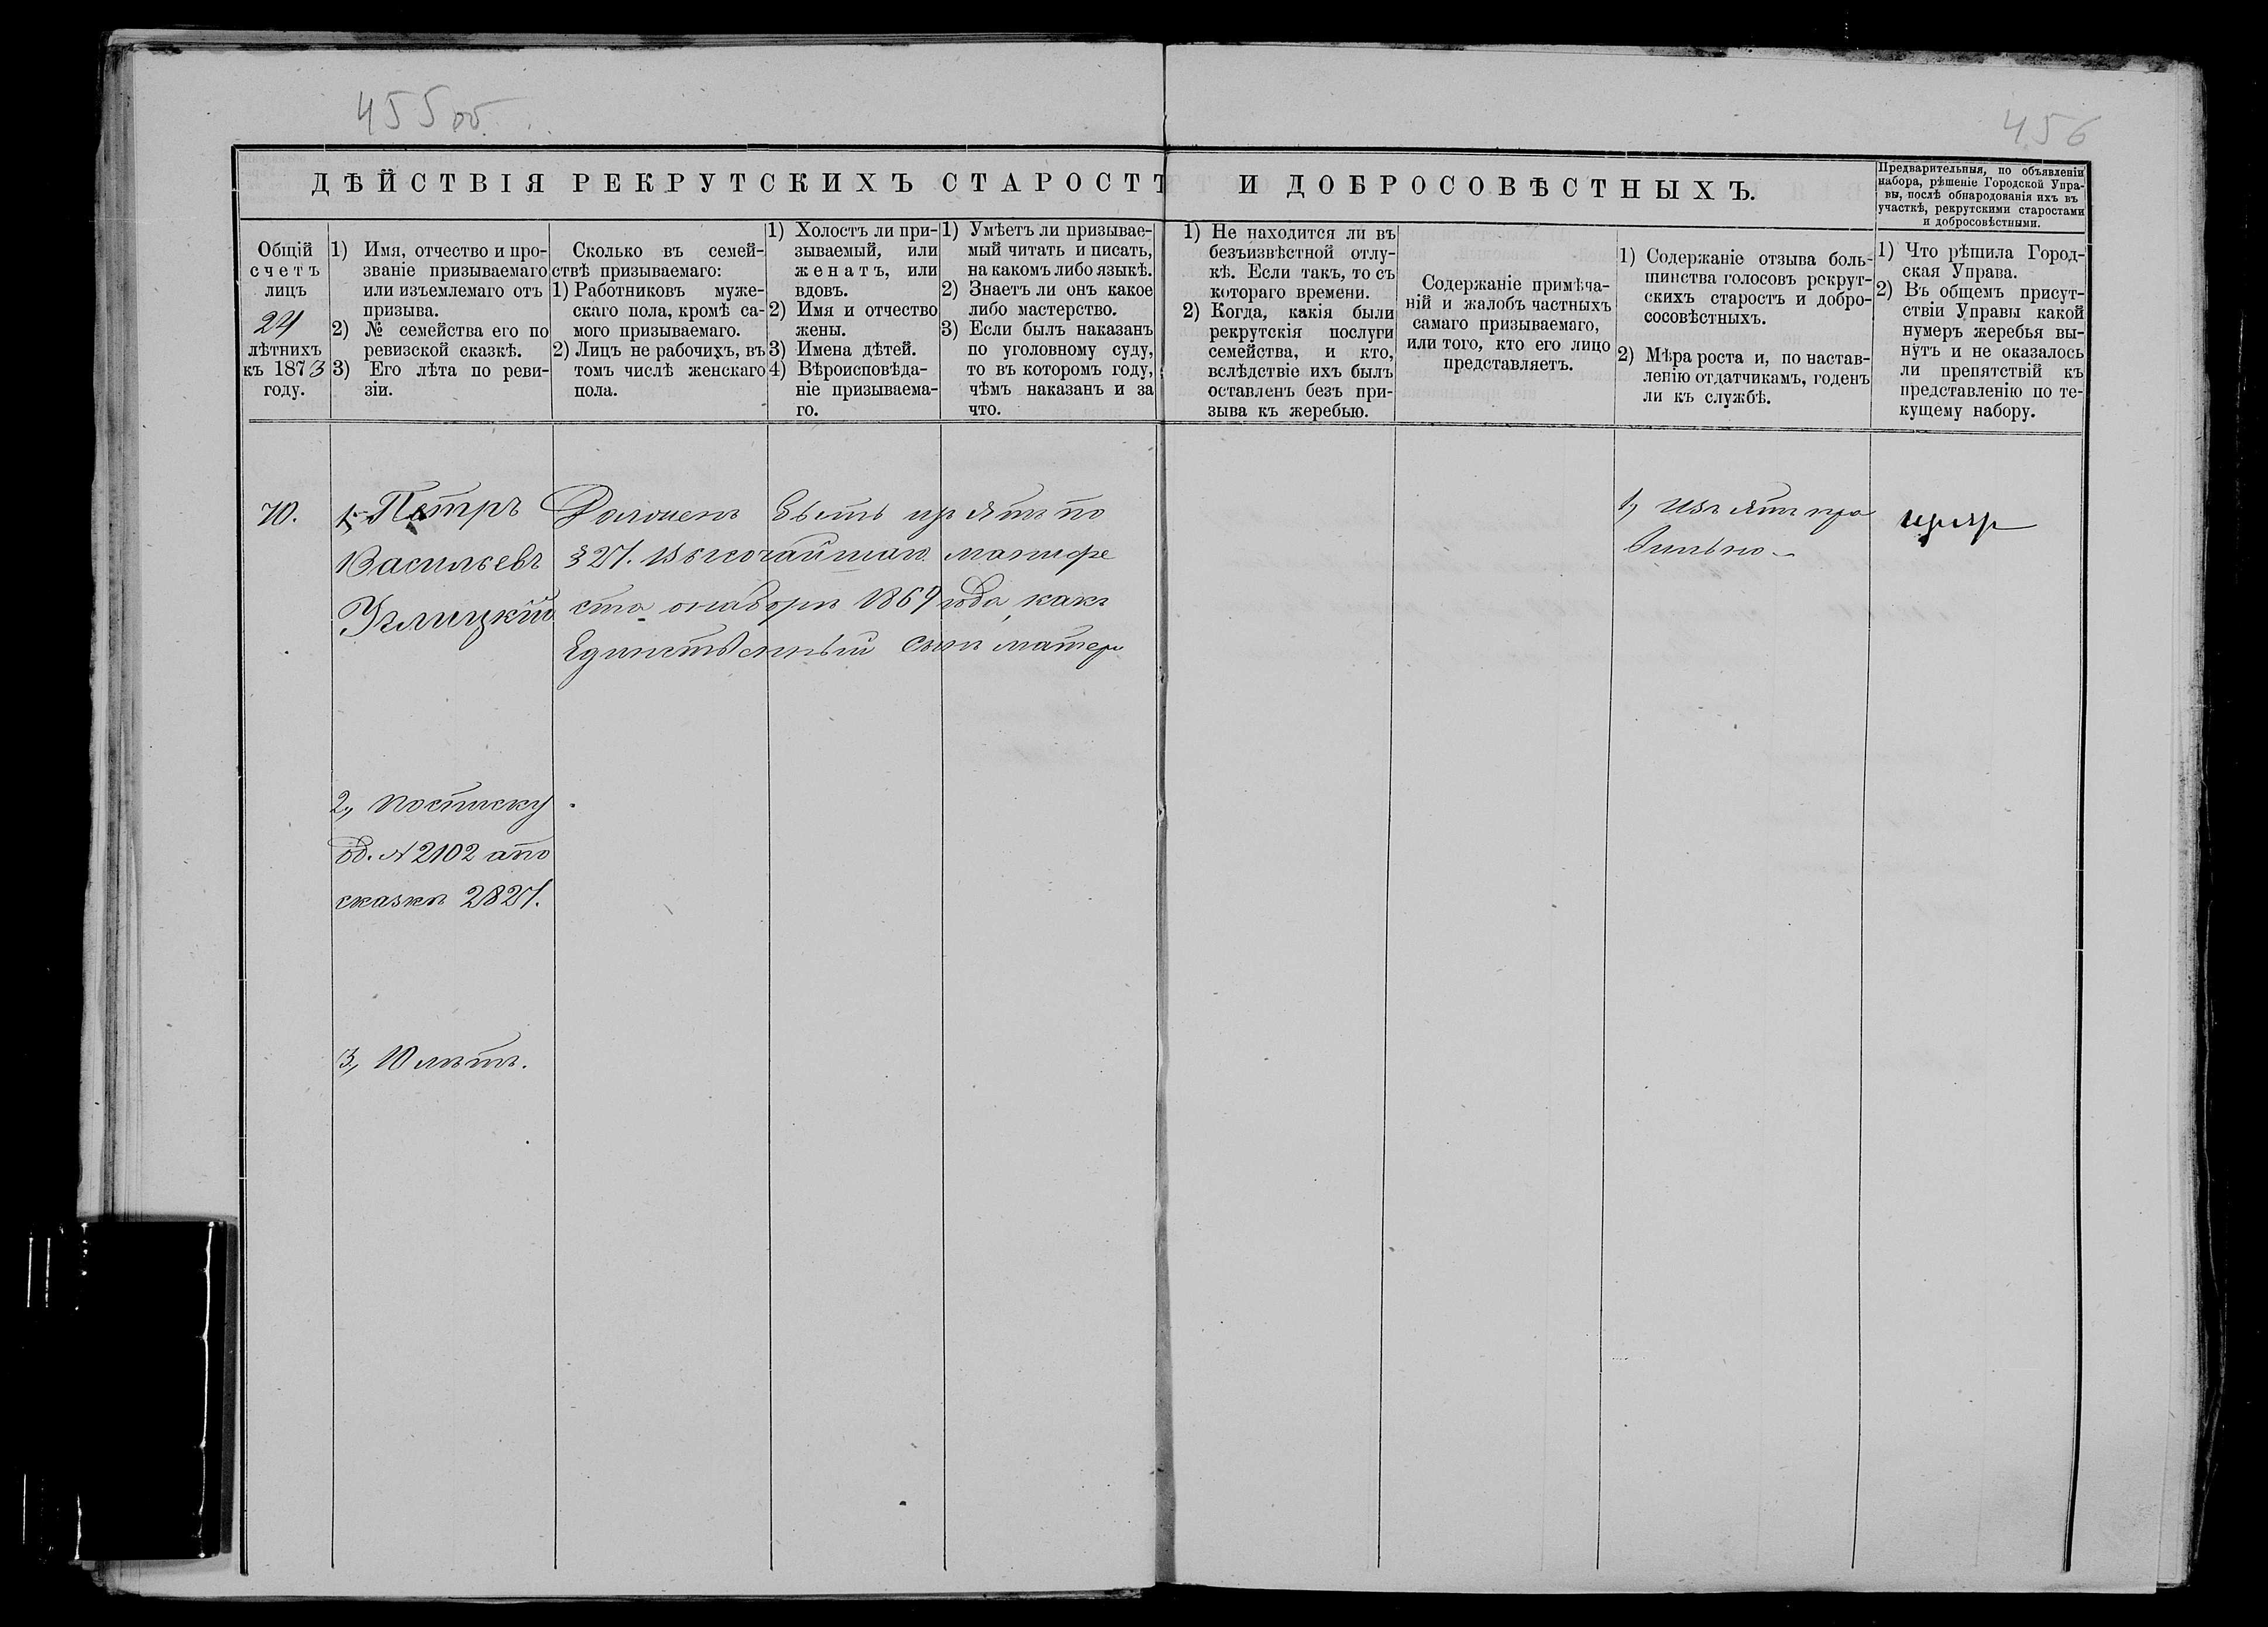 455 об.
456
ДѢЙСТВІЯ РЕКРУТСКИХЪ СТАРОСТЪ И ДОБРОСОВѢСТНЫХЪ.
Предварительныя, по объявленіи
набора, рѣшеніе Городской Упра-
вы, послѣ обнародованія ихъ въ
участкѣ, рекрутскими старостами
и добросовѣстными.
Общій
счетъ
лицъ
24
лѣтнихъ
къ 1873
году.
1) Имя, отчество и про-
званіе призываемаго
или изъемлемаго отъ
призыва.
2) № семейства его по
ревизской сказкѣ.
3) Его лѣта по реви-
зіи.
Сколько въ семей-
ствѣ призываемаго:
1) Работниковъ муже-
скаго пола, кромѣ са-
мого призываемаго.
2) Лицъ не рабочихъ, въ
томъ числѣ женскаго
пола.
1) Холостъ ли при-
зываемый, или
женатъ, или
вдовъ.
2) Имя и отчество
жены.
3) Имена дѣтей.
4) Вѣроисповѣда-
ніе призываема-
го.
1) Умѣетъ ли призывае-
мый читать и писать,
на какомъ либо языкѣ.
2) Знаетъ ли онъ какое
либо мастерство.
3) Если былъ наказанъ
по уголовному суду,
то въ которомъ году,
чѣмъ наказанъ и за
что.
1) Не находится ли въ
безъизвѣстной отлу-
кѣ. Если такъ, то съ
котораго времени.
2) Когда, какія были
рекрутскія послуги
семейства, и кто,
вслѣдствіе ихъ былъ
оставленъ безъ при-
зыва къ жеребью.
Содержаніе примѣча-
ній и жалобъ частныхъ
самаго призываемаго,
или того, кто его лицо
представляетъ.
1) Содержаніе отзыва боль-
шинства голосовъ рекрут-
скихъ старостъ и добро-
сосовѣстныхъ.
2) Мѣра роста и, по настав-
ленію отдатчикамъ, годенъ
ли къ службѣ.
1) Что рѣшила Город-
ская Управа.
2) Въ общемъ присут-
ствіи Управы какой
нумеръ жеребья вы-
нутъ и не оказалось
ли препятствій къ
представленію по те-
кущему набору.
70.
1, Петръ
Васильевъ
Углицкій
Долженъ быть изъятъ по
§ 27. Высочайшаго манифе
ста о наборѣ 1869 года, какъ
Единственный сынъ матери
1, Изъятъ пра
вильно
2, по списку
од. № 2102 а по
сказкѣ 2827.
3, 10 лѣтъ.